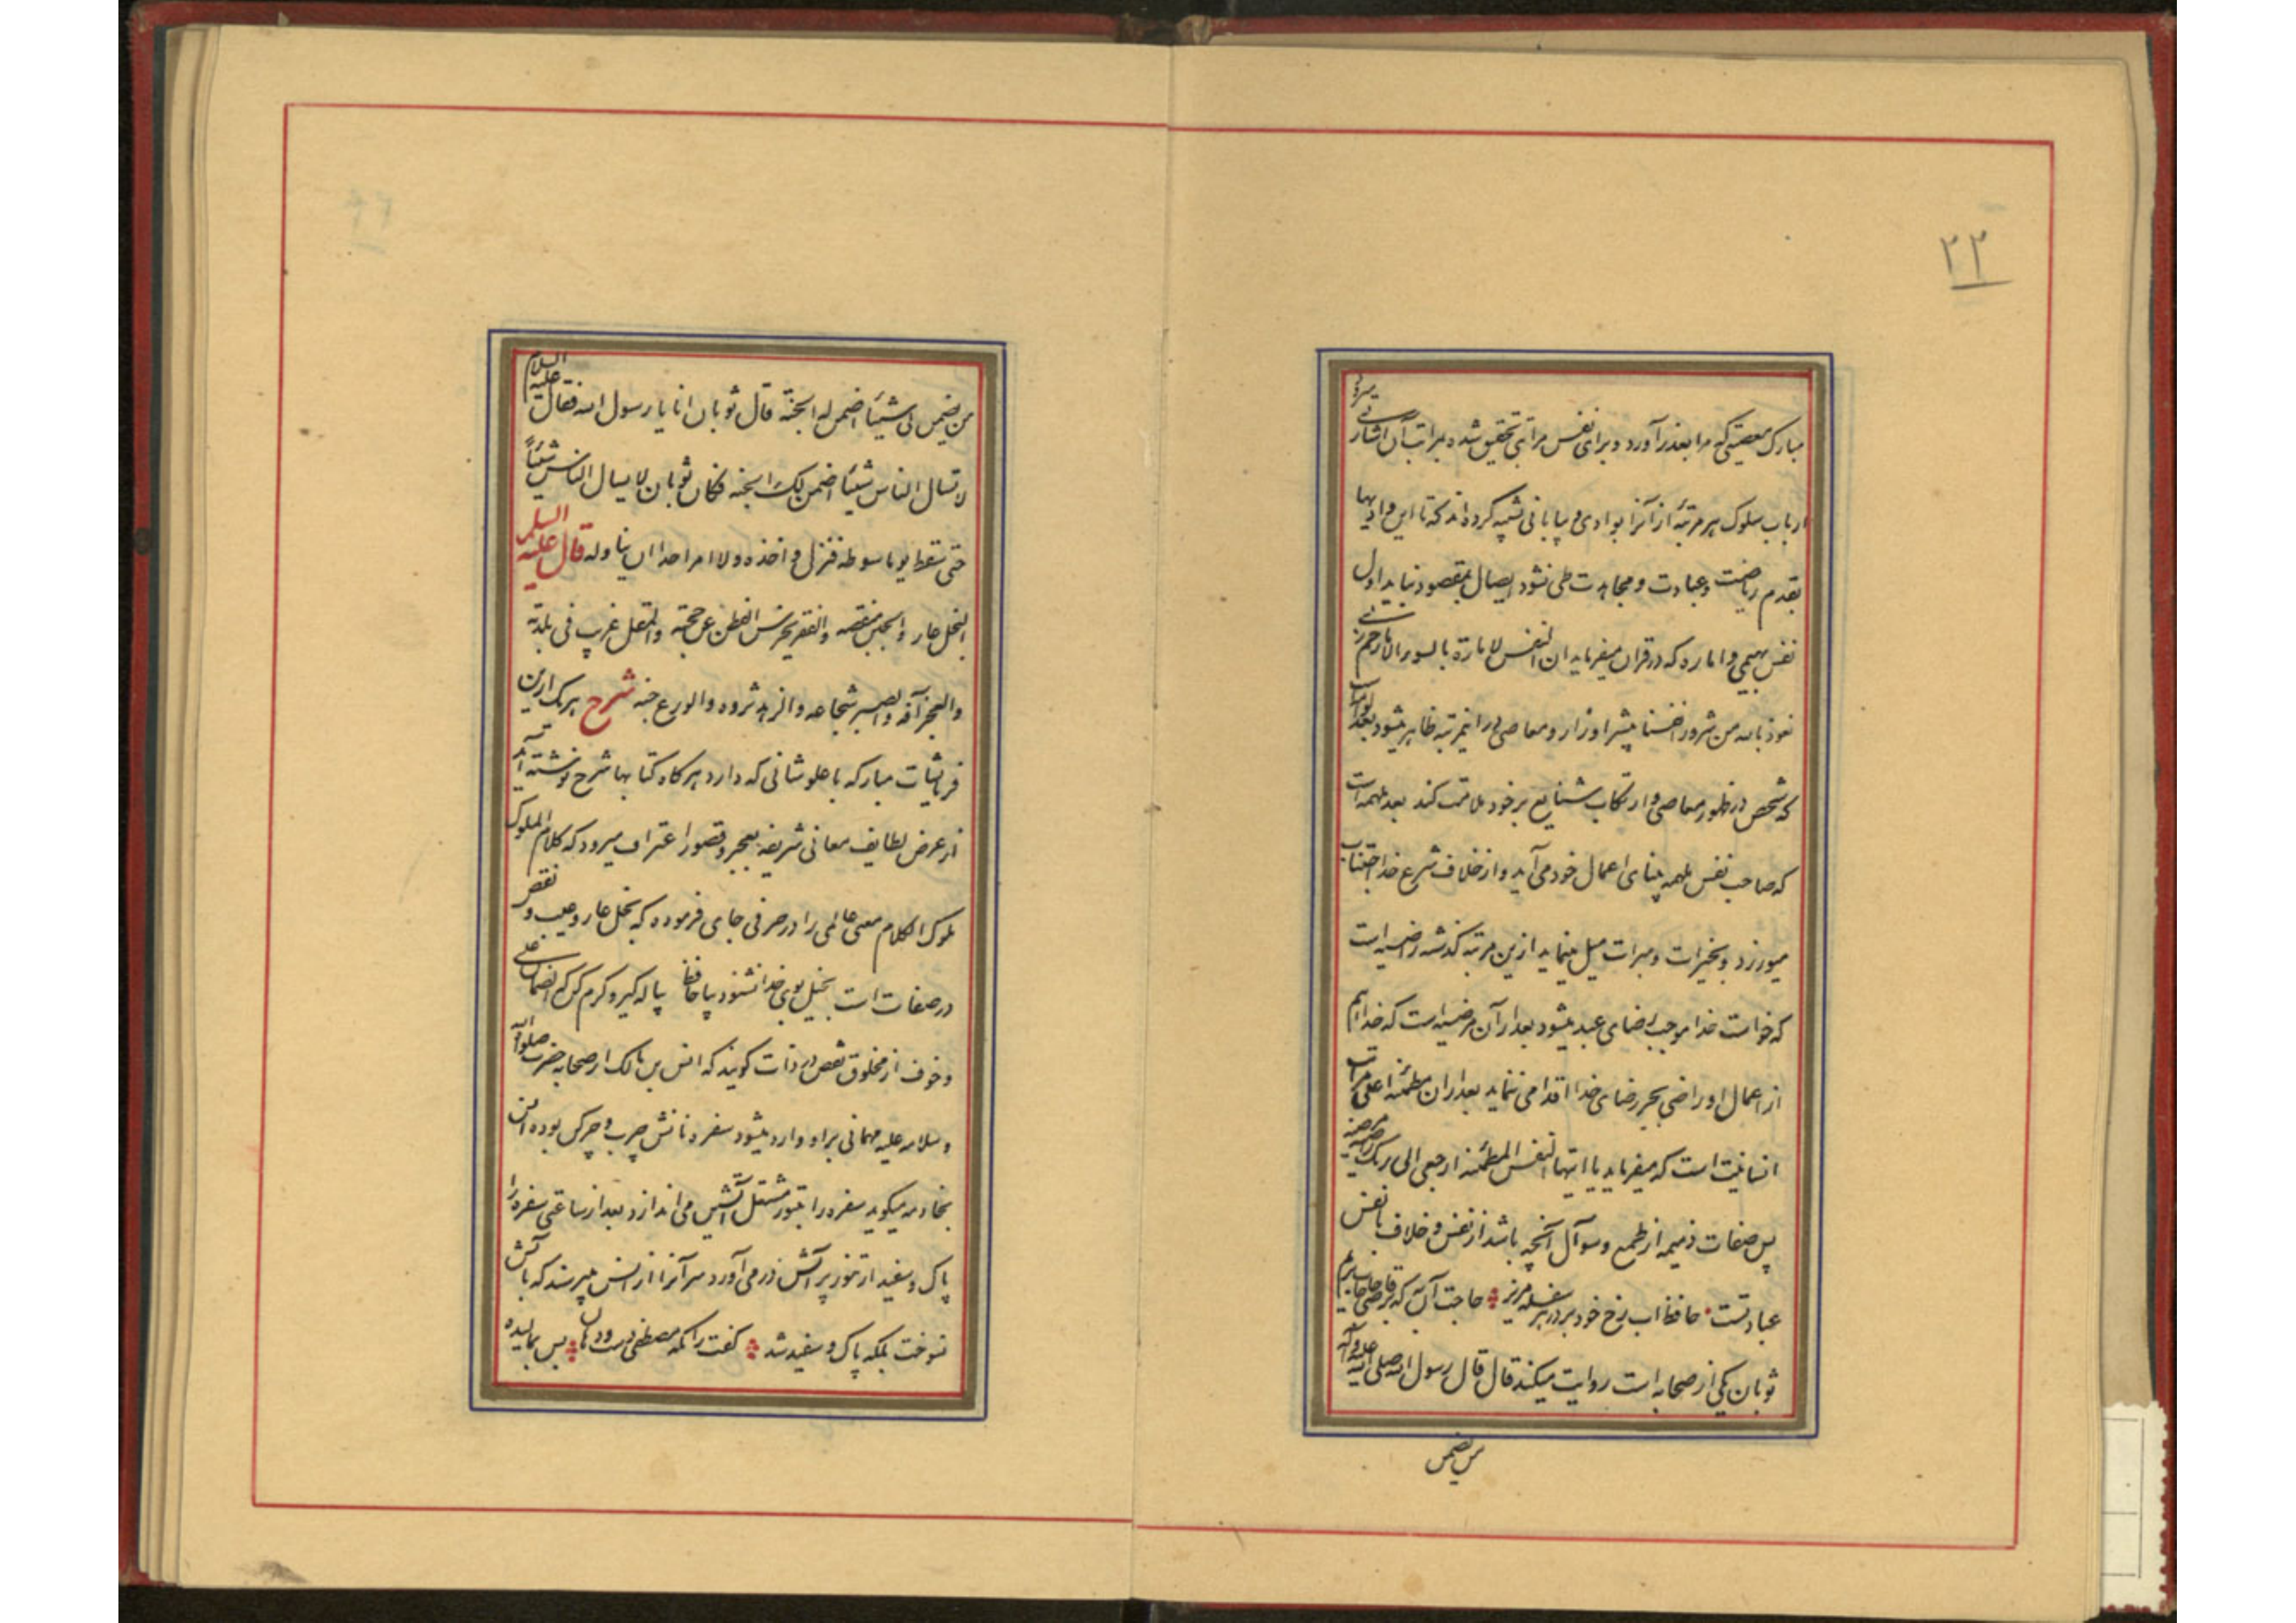 ۲۲
مبارک معصیتی که مرا بعذر آورد و برای نفس مراتبی تحقیق شده بمراتب آن اشارتی میرود
ارباب سلوک هر مرتبهٔ از آنرا بوادی و بیابانی تشبیه کرده‌اند که تا این وادیها
بقدم ریاضت و عبادت و مجاهدت طی نشود ایصال بمقصود نیاید اول
نفس بهیمی و اماره که در قران میفرماید ان النفس لامارة بالسوء الا ما رحم ربی
نعوذ بالله من شرور انفسنا بیشتر اوزار و معاصی در اینمرتبه ظاهر میشود بعد لوامه است
که شخص در ظهور معاصی و ارتکاب شنایع بر خود ملامت کند بعد ملهمه است
که صاحب نفس ملهمه بینای اعمال خود می‌آید و از خلاف شرع خدا اجتناب
میورزد و بخیرات و مبرات میل مینماید ازین مرتبه گذشته راضیه است
که خواست خدا موجب رضای عبد میشود بعد از آن مرضیه است که خدا هم
از اعمال او راضی بجز رضای خدا اقدامی ننماید بعد از ان مطمئنه اعلی مراتب
انسانیت است که میفرماید یا ایتها النفس المطمئنه ارجعی الی ربک راضیه مرضیه
پس صفات ذمیمه از طمع و سوآل آنچه باشد از نفس و خلاف با نفس
عبادتست حافظ اب رخ خود بر در هر سفله مریز حاجت آن به که بر قاضی حاجات بریم
ثوبان یکی از صحابه است روایت میکند قال قال رسول الله صلی الله علیه و آله
من یضمن
من یضمن لی شیئا اضمن له الجنة قال ثوبان انا یا رسول الله فقال علیه السلام
لا تسال الناس شیئا اضمن لک الجنه فکان ثوبان لا یسال الناس شیئاً
حتی سقط یوما سوطه فنزل و اخذه و لا امر احدا ان یناوله قال علیه السلم
البخل عار والجبن منقصه والفقر یخرس الفطن عن حجته والمقل غریب فی بلدته
والعجز آفه والصبر شجاعه والزهد ثروه والورع جنه شرح هر یک ازین
فرمایشات مبارکه با علو شانی که دارد هر گاه کتابها شرح نوشته آید
از عرض لطایف معانی شریفه بعجز و قصور اعتراف میرود که کلام الملوک
ملوک الکلام معنی عالمی را در حرفی جای فرموده که بخل عار و عیب و نقص
در صفات است بخیل بوی خدا نشنود بیا حافظ پیاله گیر و کرم کن که الضمان علی
و خوف از مخلوق نقص در ذات گویند که انس بن مالک از صحابه حضرت صلوات الله
و سلامه علیه مهمانی بر او وارد میشود سفره نانش چرب و چرکین بوده انس
بخادمه میگوید سفره را بتنور مشتعل آتشین می‌اندازد بعد از ساعتی سفره را
پاک و سفید از تنور پر آتش در می‌آورد سر آنرا از انس میپرسند که بآتش
نسوخت بلکه پاک و سفید شد گفت زانکه مصطفی دست و دهان بس بمالیده